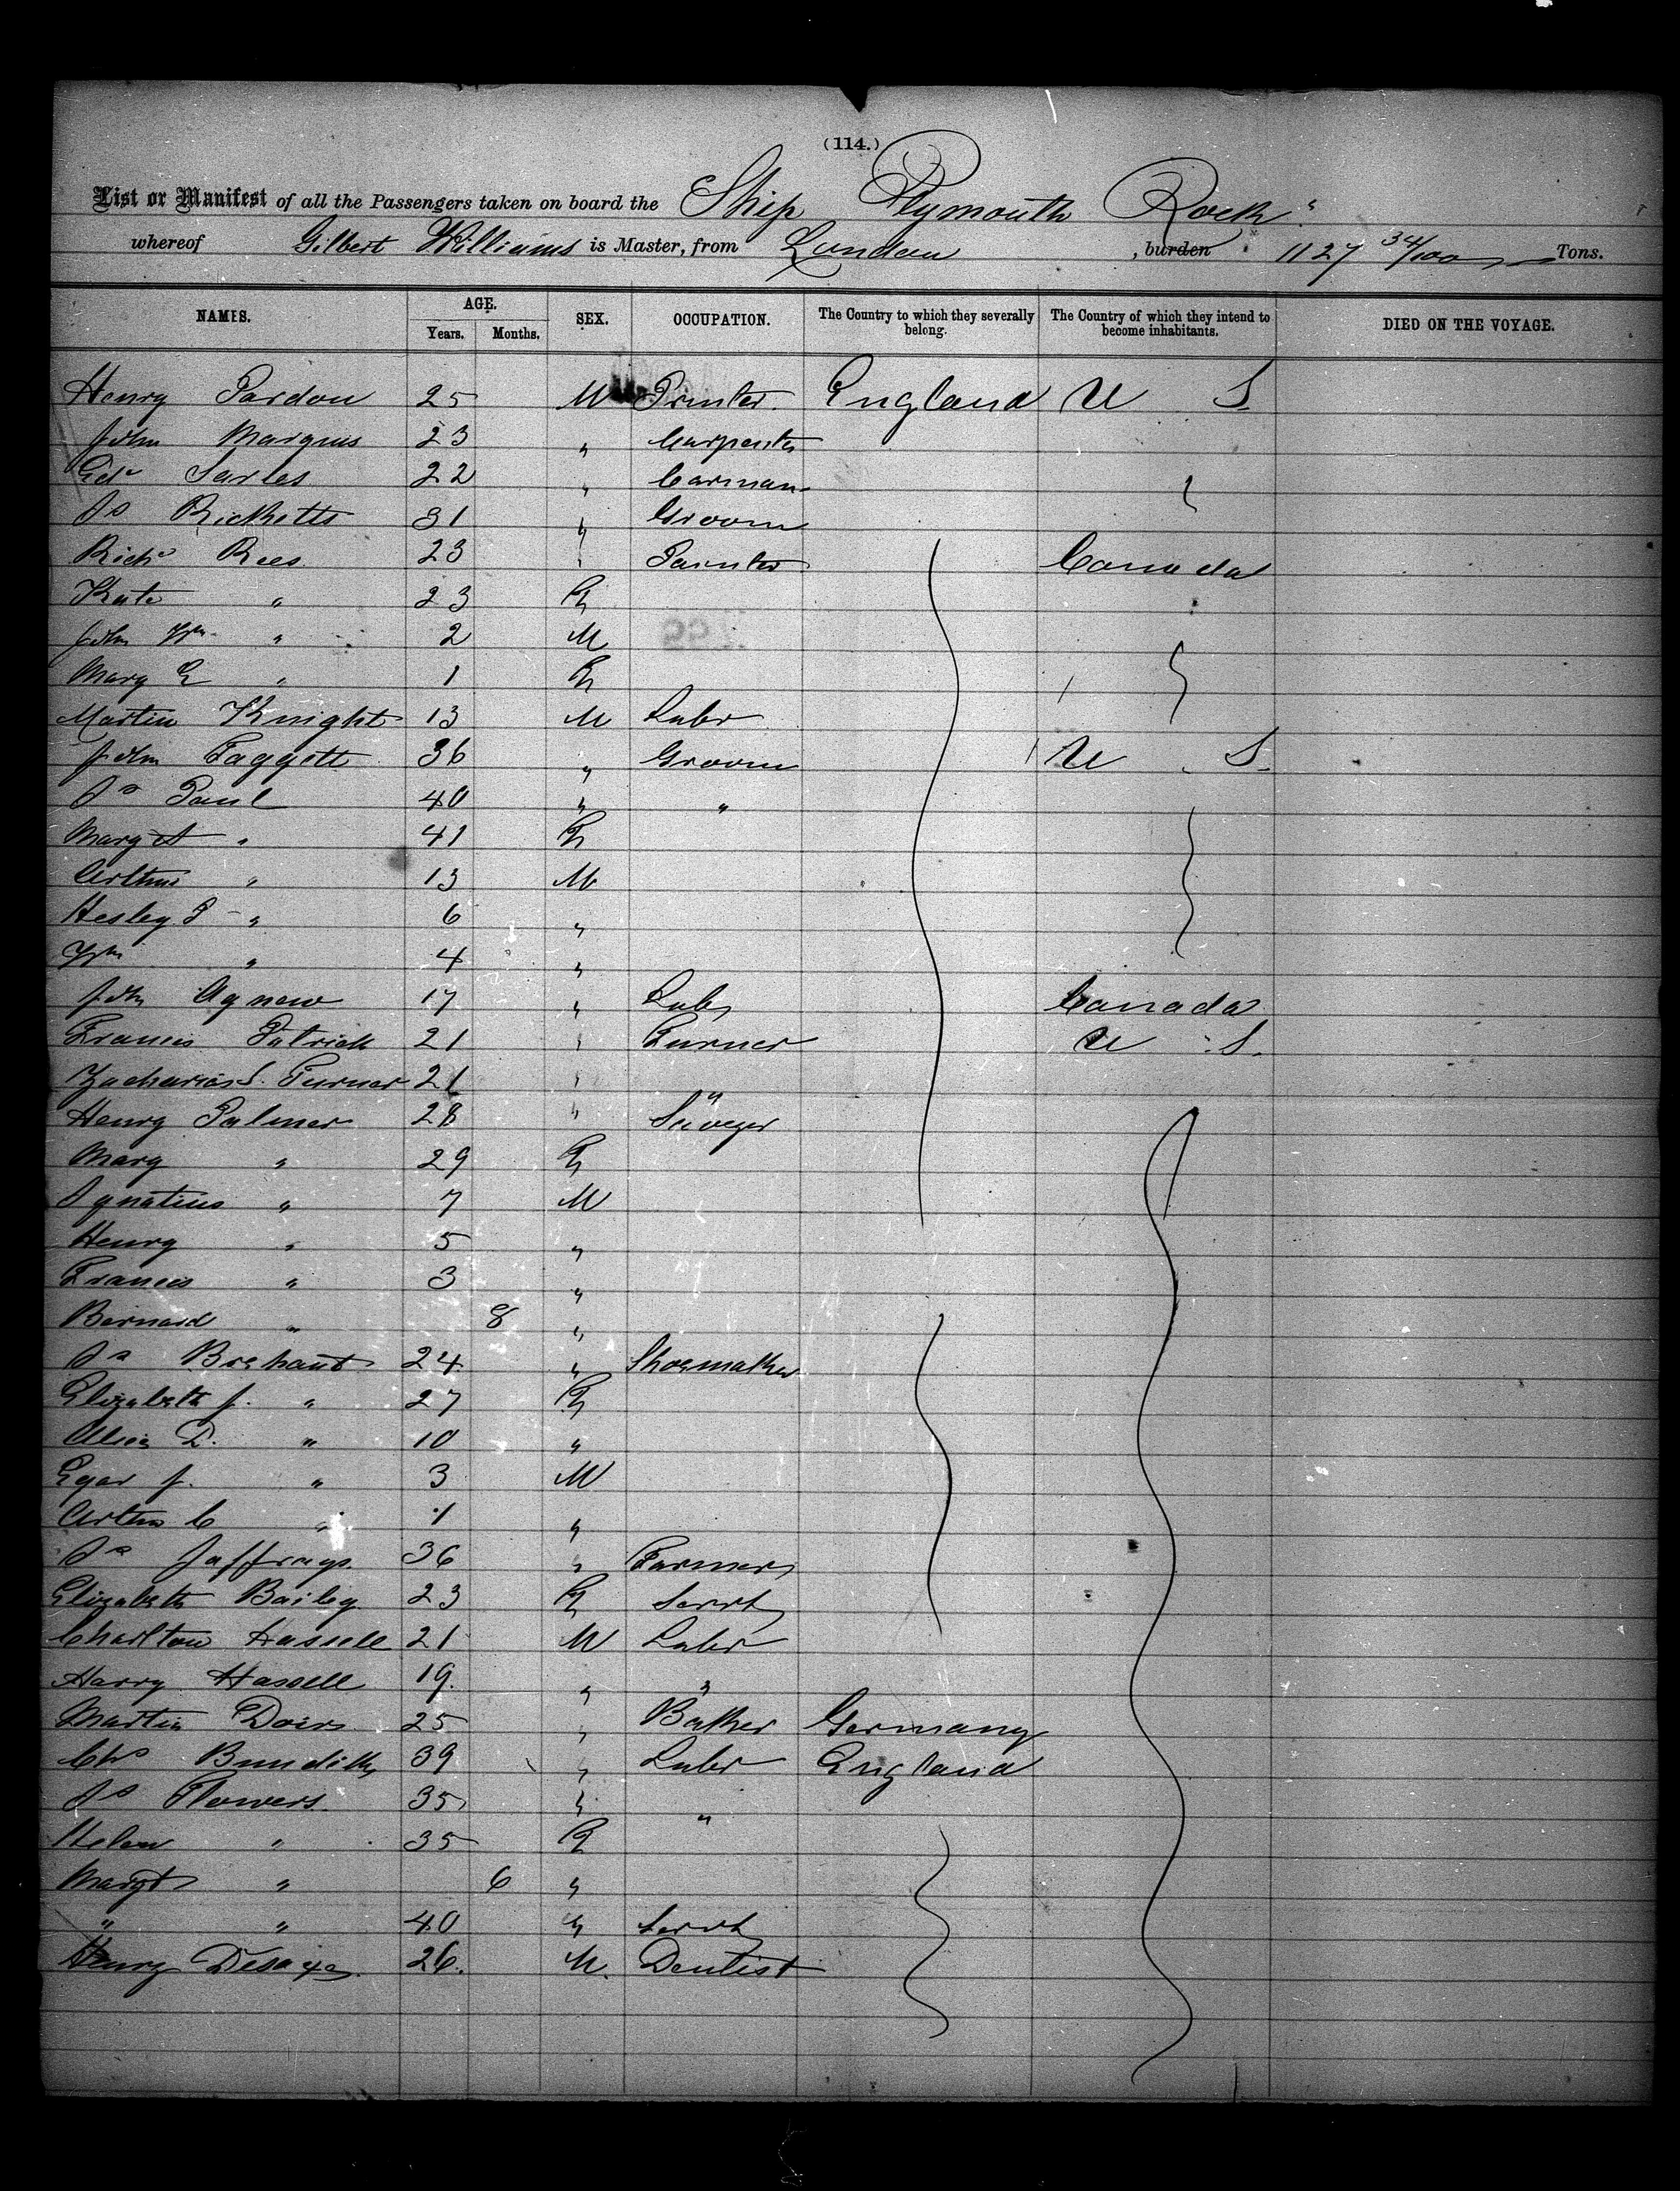 (114.)
List or Manifest of all the Passengers taken on board the Ship Plymouth Rock"
whereof Gilbert Williams is Master, from London , burden 1127 34/100 Tons.
NAMES. AGE. SEX. OCCUPATION. The Country to which they severally belong. The Country of which they intend to become inhabitants. DIED ON THE VOYAGE.
Years. Months.
Henry Pardon 25 M Printer. England U S.
John Marquis 23 " Carpenter
Edd Sarles 22 " Carman
Js Ricketts 31 " Groom
Richd Rees 23 " Painter Canada
Kate " 23 F
John Wm " 2 M
Mary E " 1 F
Martin Knight 13 M Labr
John Taggett 36 " Groom U S.
Js Paul 40 " "
Margt " 41 F
Arthur " 13 M
Hesley " 6 "
Wm " 4 "
John Agnew 17 " Labr Canada
Francis Patrick 21 " Turner U S.
Zacharias S. Turner 21 " "
Henry Palmer 28 " Sawyer
Mary " 29 F
Ignatius " 7 M
Henry " 5 "
Francis " 3 "
Bernard " 8 "
Js Brehaut 24 " Shoemaker
Elizabeth J. " 27 F
Alice " 10 "
Egar J. " 3 M
Arthur C " 1 "
Js Jaffrays 36 " Farmer
Elizabeth Bailey 23 F Servt
Charlton Hassell 21 M Labr
Harry Hassell 19. " "
Martin 25 " Baker Germany
Chs 39 " Labr England
Js Flowers. 35 " "
Helen " 35 F
Margt " 6 "
" " 40 " Servt
Henry 26. M. Dentist